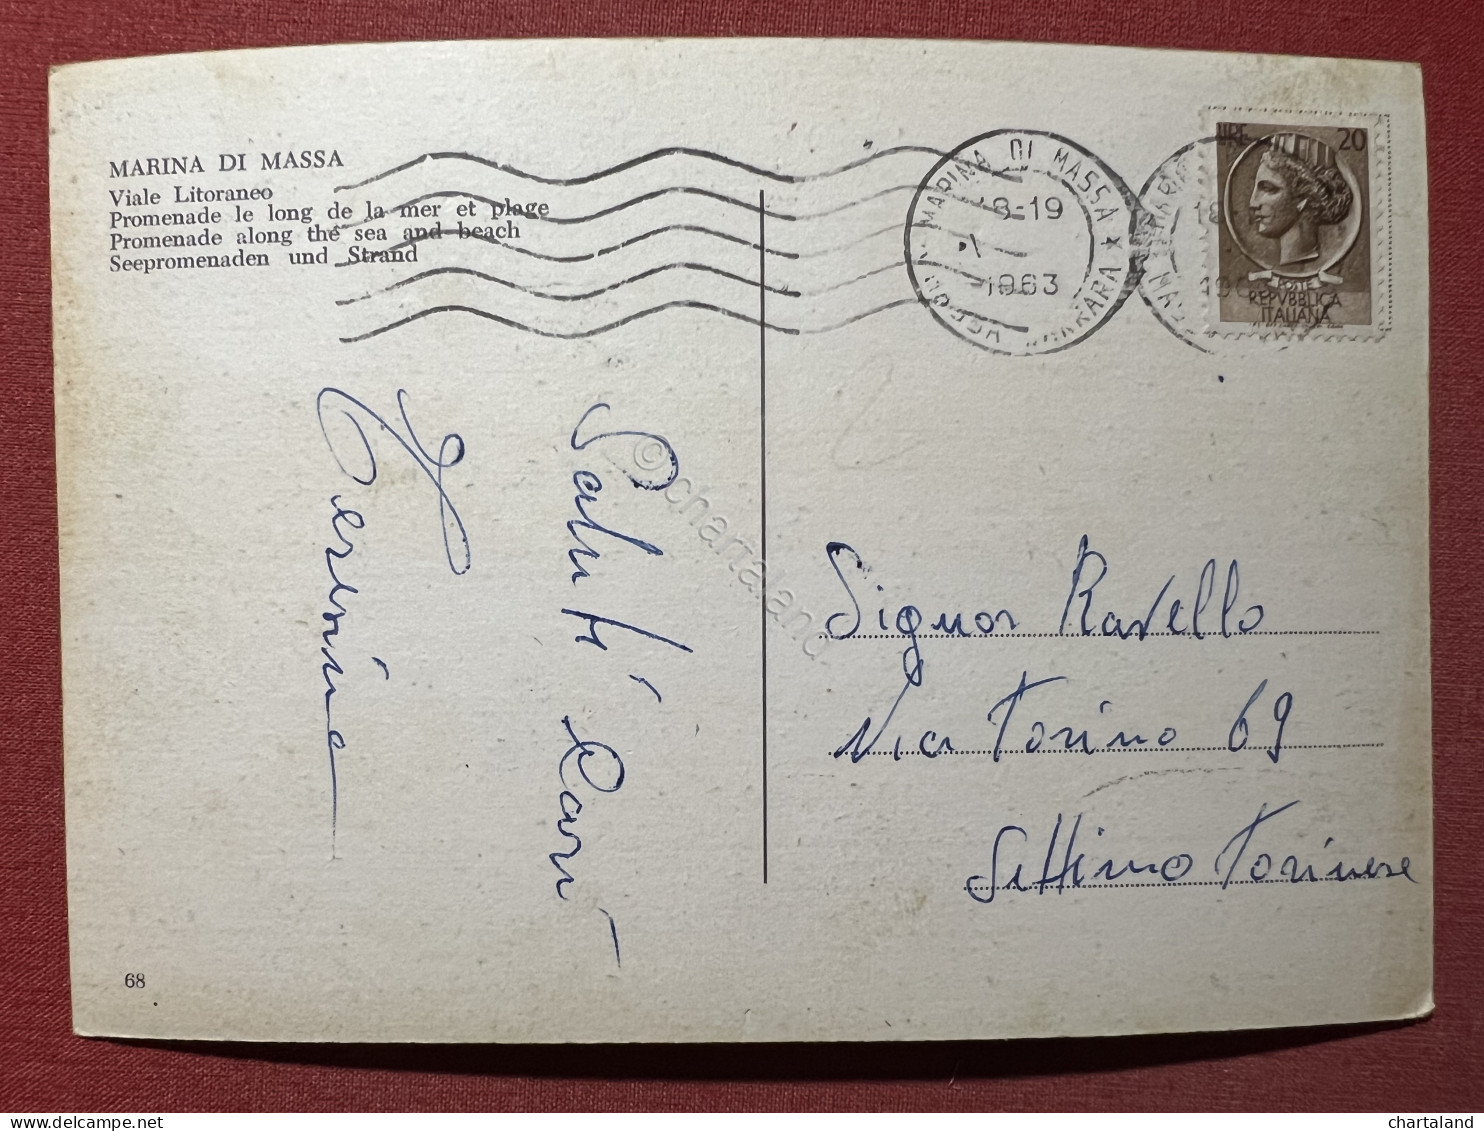 MARINA DI MASSA
Viale Litoraneo
Promenade le long de la mer et plage
Promenade along the sea and beach
Seepromenaden und Strand
MARINA DI MASSA
18-19
1963
LIRE 20
POSTE
REPVBBLICA
ITALIANA
Saluti cari
Signor Ravello
Via Torino 69
Settimo Torinese
68
© chartaland
delcampe.net
chartaland